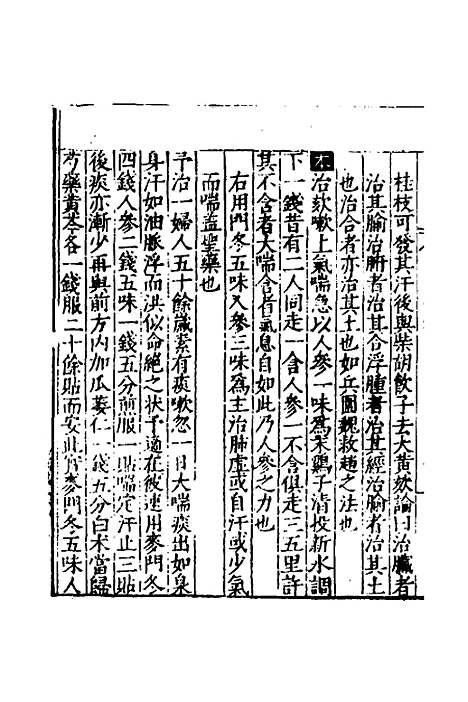 桂枝可發其汗後與柴胡飲子去大黃欬論曰治臟者
治其腧治腑者治其合浮腫者治其經治腧者治其土
也治合者亦治其土也如兵圍魏救趙之法也
本治欬嗽上氣喘急以人參一味爲末鷄子清投新水調
下一錢昔有二人同走一含人參一不含俱走三五里許
其不含者大喘含者氣息自如此乃人參之力也
右用門冬五味人參三味爲主治肺虛或自汗或少氣
而喘蓋聖藥也
予治一婦人五十餘歲素有痰嗽忽一日大喘痰出如泉
身汗如油脈浮而洪似命絕之狀予適在彼速用麥門冬
四錢人參二錢五味一錢五分煎服一貼喘定汗止三貼
後痰亦漸少再與前方內加瓜蔞仁一錢五分白术當歸
芍藥黃芩各一錢服二十餘貼而安此實麥門冬五味人